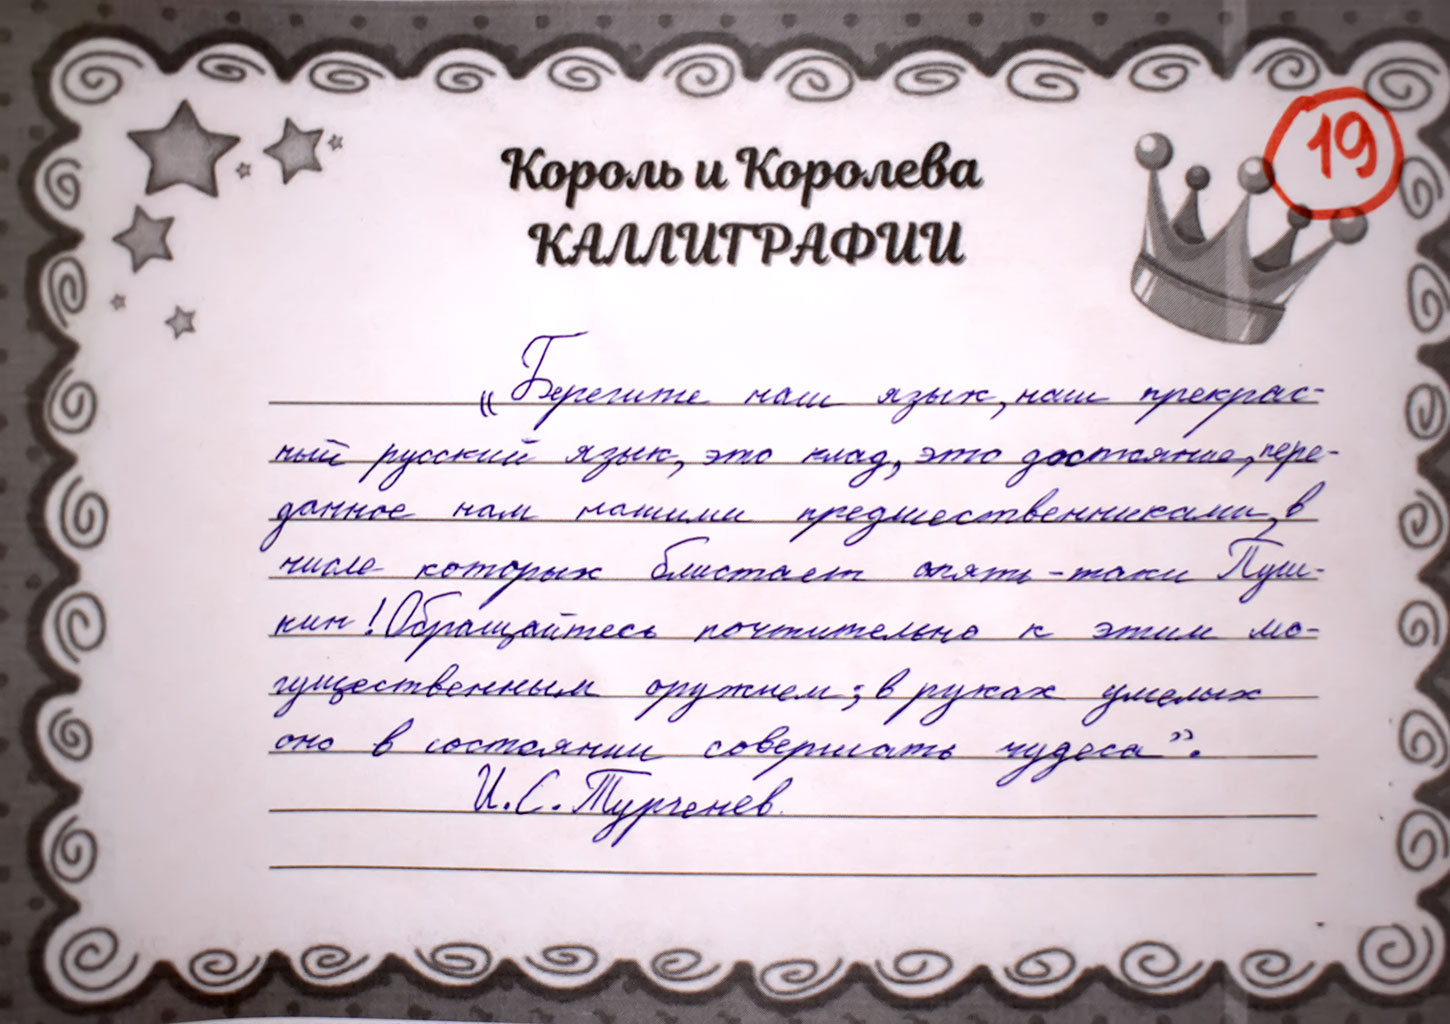 Король и Королева
КАЛЛИГРАФИИ
19
„Берегите наш язык, наш прекрас-
ный русский язык, это клад, это достояние, пере-
данное нам нашими предшественниками, в
числе которых блистает опять-таки Пуш-
кин! Обращайтесь почтительно к этим мо-
гущественным оружием; в руках умелых
оно в состоянии совершать чудеса".
И. С. Тургенев.